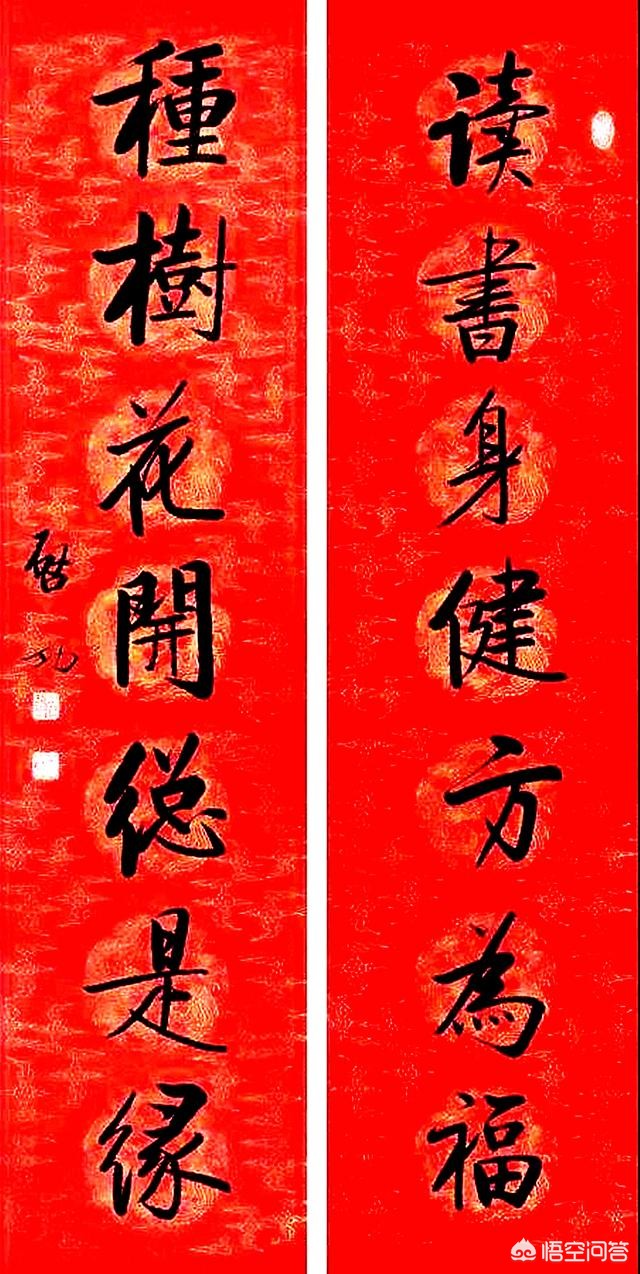 读书身健方为福
種樹花開総是縁
啓功
悟空问答